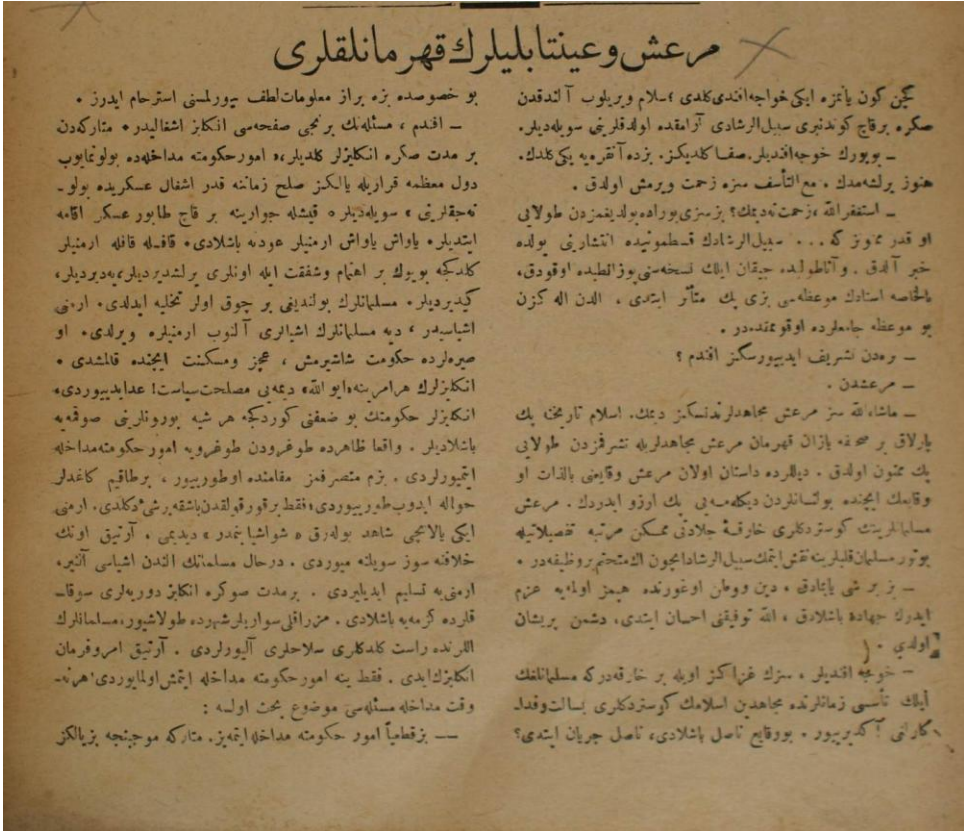 مرعش وعينتابليلرك قهرمانلقلرى
كچن كون يانمزه ايكى خواجه افندى كلدى ؛ سلام ويريلوب آلندقدن
صكره برقاچ كوندنبرى سبيل الرشادى آرامقده اولدقلرينى سويله ديلر.
ـ بويورك خوجه افنديلر. صفا كلديكز. بزده آنقره يه يكى كلدك.
هنوز يرلشه مدك. مع التأسف سزه زحمت ويرمش اولدق .
ـ استغفر الله ، زحمت نه ديمك؟ بز سزى بوراده بولديغمزدن طولايى
او قدر ممنونز كه . . . سبيل الرشادك قسطمونيده انتشارينى يولده
خبر آلدق . وآناطوليده چيقان ايلك نسخه سنى يوزغادده اوقودق.
بالخاصه استادك موعظه سى بزى پك متأثر ايتدى . الدن اله كزن
بو موعظه جامعلرده اوقونمقده در .
ـ نره دن تشريف ايدييورسكز افندم ؟
ـ مرعشدن .
ـ ماشاء الله سز مرعش مجاهدلرندنسكز ديمك. اسلام تاريخنه پك
پارلاق بر صحفه يازان قهرمان مرعش مجاهدلريله تشرفمزدن طولايى
پك ممنون اولدق . ديللرده داستان اولان مرعش وقايعنى بالذات او
وقايعك ايچنده بولنانلردن ديكله مه يى پك آرزو ايدردك. مرعش
مسلمانلرينك كوستردكلرى خارقهٔ جلادتى ممكن مرتبه تفصيلاتيله
بوتون مسلمان قلبلرينه نقش ايتمك سبيل الرشاد ايچون اك متحتم بر وظيفه در .
ـ بز بر شى يابمادق . دين ووطن اوغورنده هپمز اولمه يه عزم
ايدرك جهاده باشلادق ، الله توفيقنى احسان ايتدى، دشمن پريشان
اولدى .
ـ خوجه افنديلر ، سزك غزاكز اويله بر خارقه در كه مسلمانلغك
ايلك تأسسى زمانلرنده مجاهدين اسلامك كوستردكلرى بسالت وفدا ـ
كارلغى آكديرييور . بو وقايع ناصل باشلادى، ناصل جريان ايتدى؟
بو خصوصده بزه براز معلومات لطف بيورلمسنى استرحام ايدرز .
ـ افندم ، مسئله نك برنجى صفحه سى انكليز اشغاليدر . متاركه دن
بر مدت صكره انكليزلر كلديلر، « امور حكومته مداخله ده بولونمايوب
دول معظمه قراريله يالكز صلح زماننه قدر اشغال عسكريده بولو ـ
نه جقلرينى » سويله ديلر. قيشله جوارينه بر قاچ طابور عسكر اقامه
ايتديلر. ياواش ياواش ارمنيلر عودته باشلادى. قافله قافله ارمنيلر
كلدكجه بويوك بر اهتمام وشفقت ايله اونلرى يرلشديرديلر، يديرديلر،
كيديرديلر . مسلمانلرك بولنديغى بر چوق اولر تخليه ايدلدى . ارمنى
اشياسيدر ، ديه مسلمانلرك اشيالرى آلنوب ارمنيلره ويرلدى . او
صيره لرده حكومت شاشيرمش ، عجز ومسكنت ايچنده قالمشدى .
انكليزلرك هر امرينه « ايو الله » ديمه يى مصلحت سياست! عد ايدييوردى.
انكليزلر حكومتك بو ضعفنى كوردكجه هر شيه بورونلرينى صوقمه يه
باشلاديلر . واقعا ظاهرده طوغرودن طوغرويه امور حكومته مداخله
ايتميورلردى . بزم متصرفمز مقامنده اوطورييور ، برطاقيم كاغدلر
حواله ايدوب طورييوردى، فقط بر قورقولقدن باشقه برشى دكلدى. ارمنى
ايكى يالانجى شاهد بوله رق « شو اشيا بنمدر » ديديمى . آرتيق اونك
خلافنه سوز سويلنه ميوردى . درحال مسلمانك الندن اشياسى آلنير،
ارمنى يه تسليم ايديليردى . برمدت صوكره انكليز دوريه لرى سوقا ـ
قلرده كزمه يه باشلادى . مزراقلى سواريلر شهرده طولاشيور، مسلمانلرك
اللرنده راست كلدكلرى سلاحلرى آليورلردى . آرتيق امر وفرمان
انكليزك ايدى . فقط ينه امور حكومته مداخله ايتمش اولمايوردى! هر نه ـ
وقت مداخله مسئله سى موضوع بحث اولسه :
ـــ بز قطعياً امور حكومته مداخله ايتمه يز. متاركه موجبنجه بز يالكز